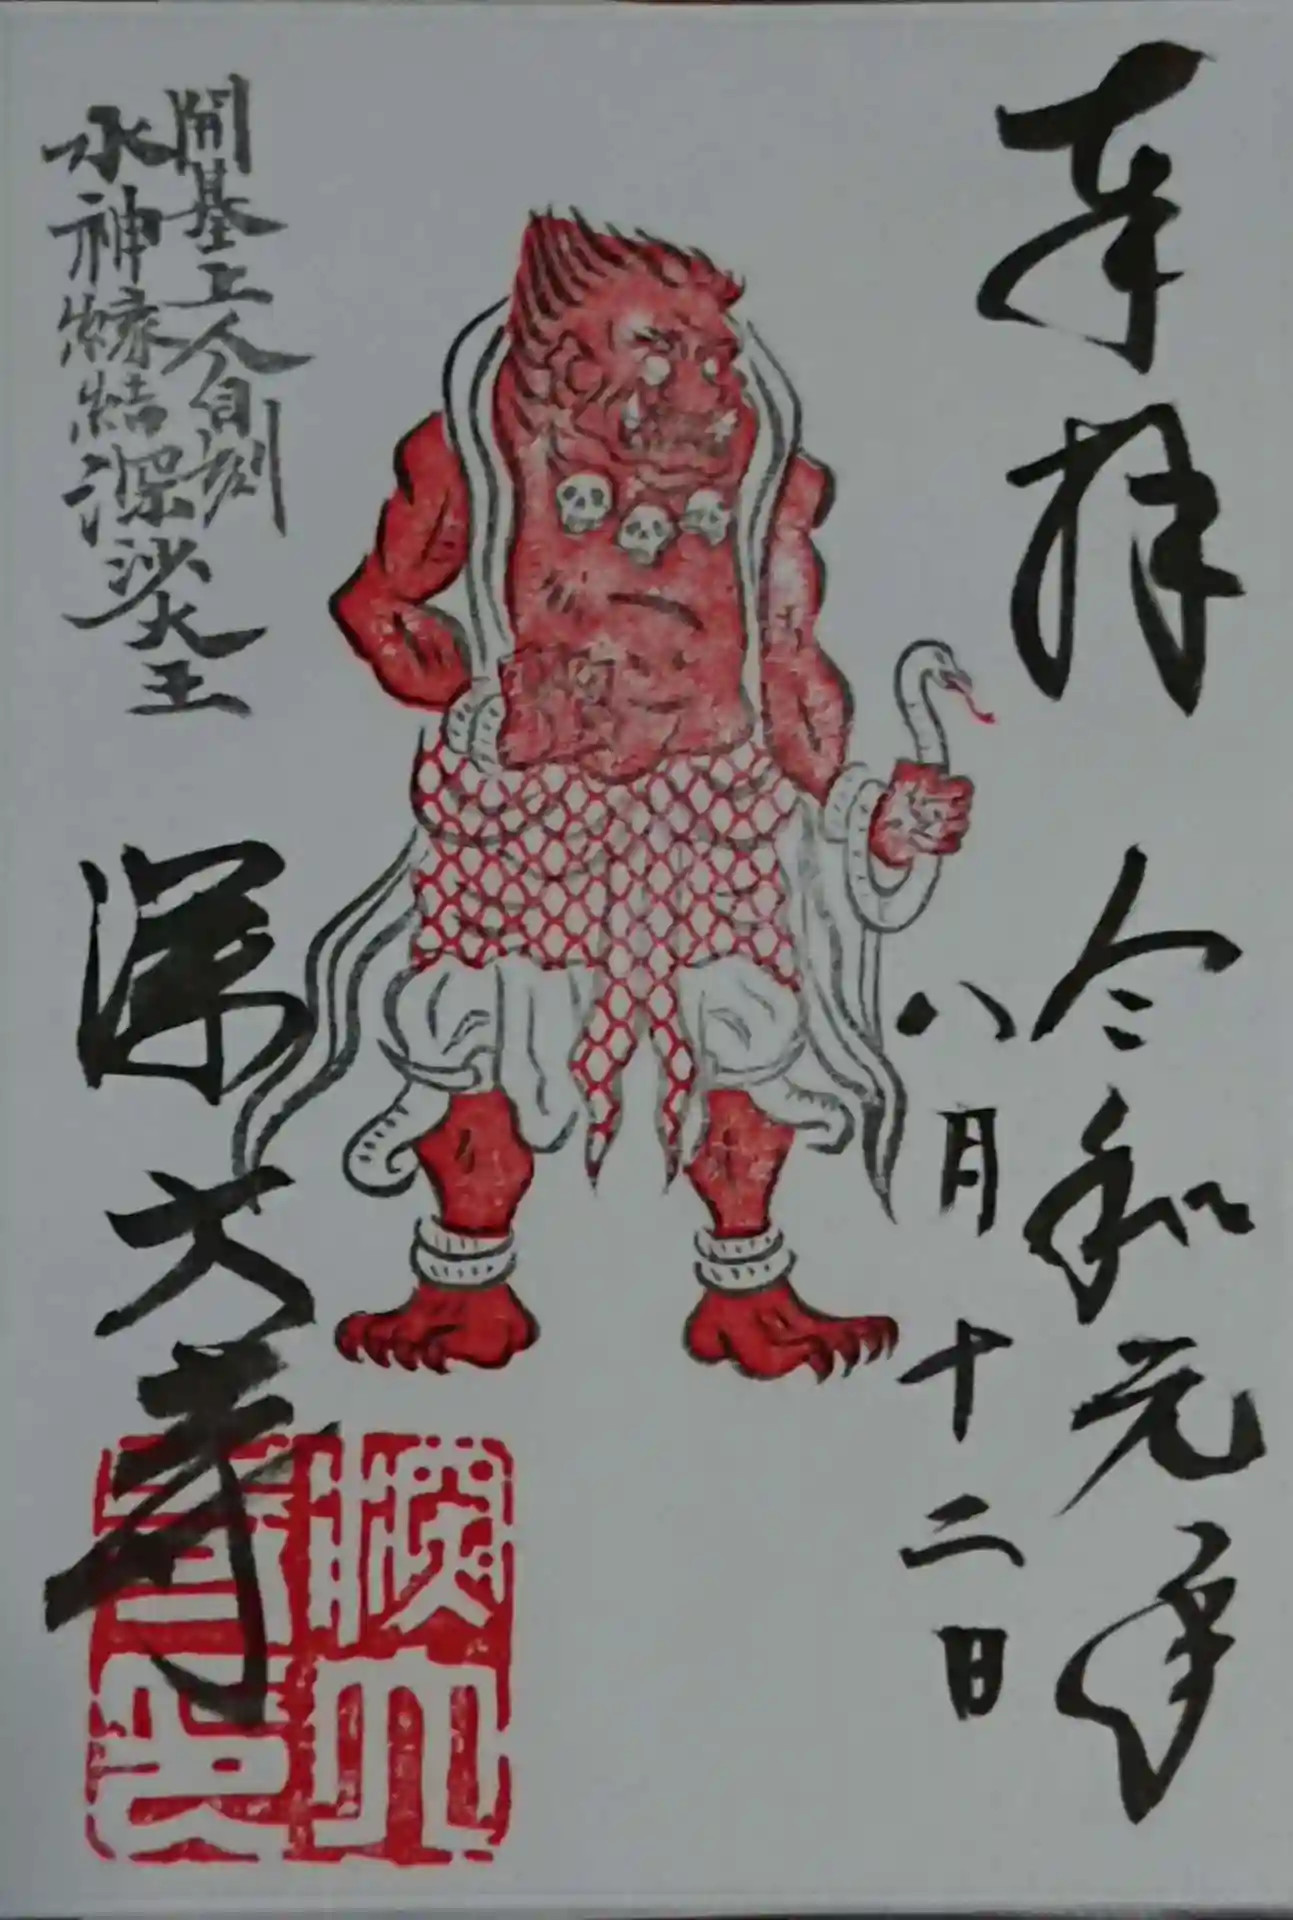 奉拝
令和元年
八月十二日
開基上人自刻
水神縁結深沙大王
深大寺
深大寺印